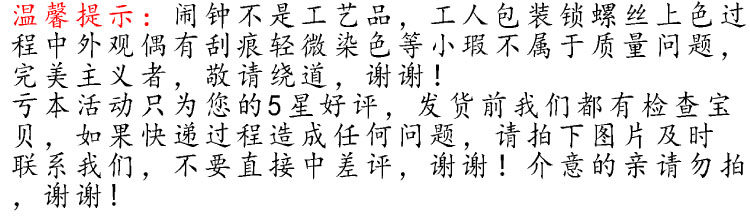 温馨提示：闹钟不是工艺品，工人包装锁螺丝上色过
程中外观偶有刮痕轻微染色等小瑕不属于质量问题，
完美主义者，敬请绕道，谢谢！
亏本活动只为您的5星好评，发货前我们都有检查宝
贝，如果快递过程造成任何问题，请拍下图片及时
联系我们，不要直接中差评，谢谢！介意的亲请勿拍
，谢谢！